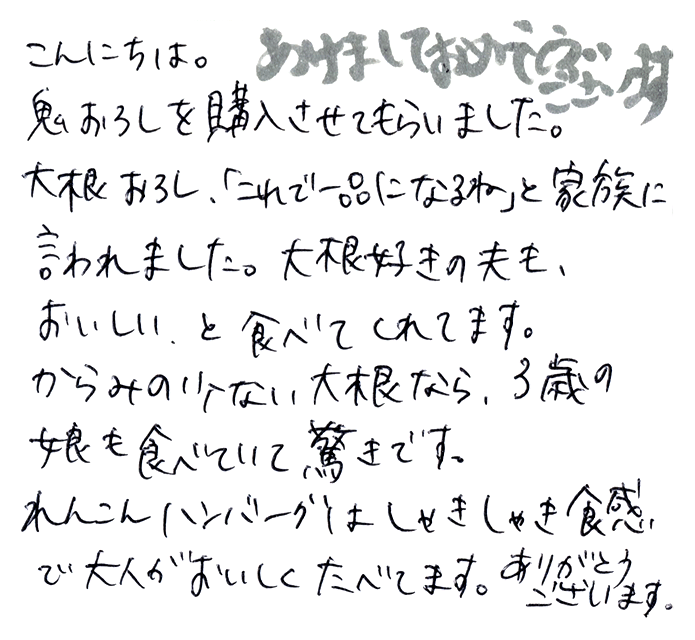 こんにちは。
あけましておめでとうございます
鬼おろしを購入させてもらいました。
大根おろし、「これで一品になるね」と家族に
言われました。大根好きの夫も、
おいしい、と食べてくれてます。
からみの少ない大根なら、3歳の
娘も食べていて驚きです。
れんこんハンバーグはしゃきしゃき食感
で大人がおいしくたべてます。ありがとう
ございます。